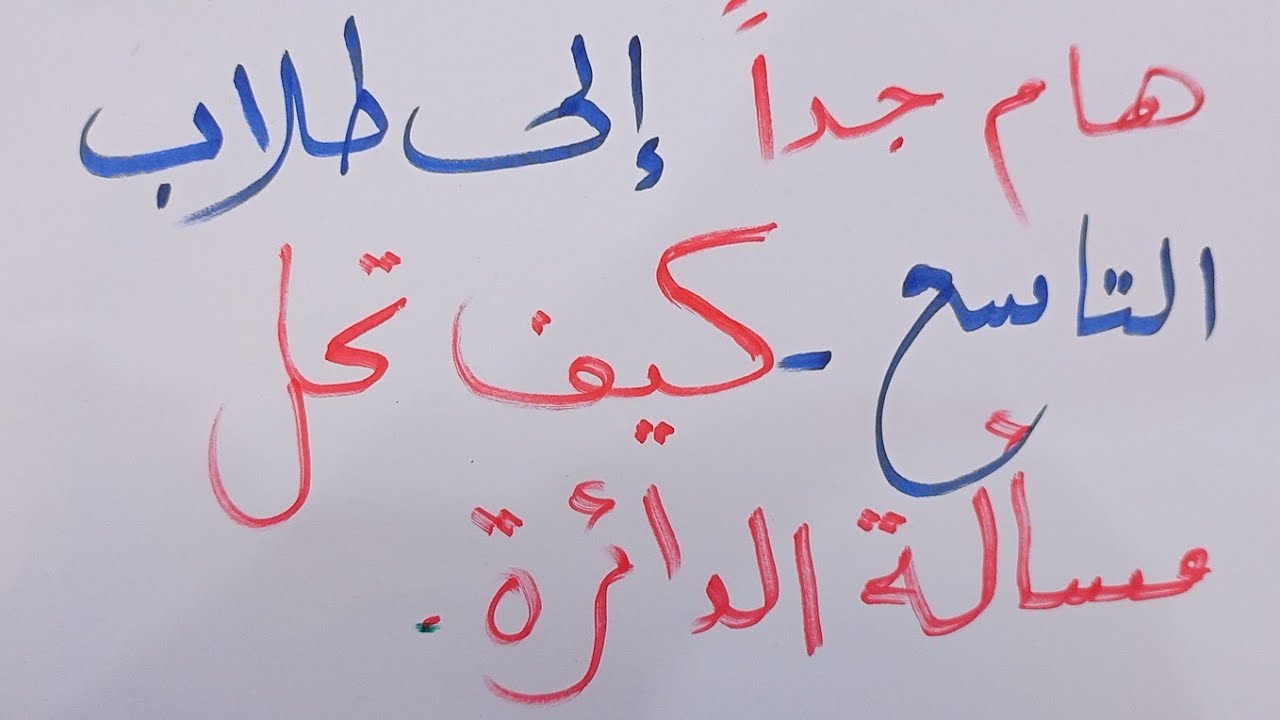 هام جداً إلى طلاب
التاسع - كيف تحل
مسألة الدائرة .